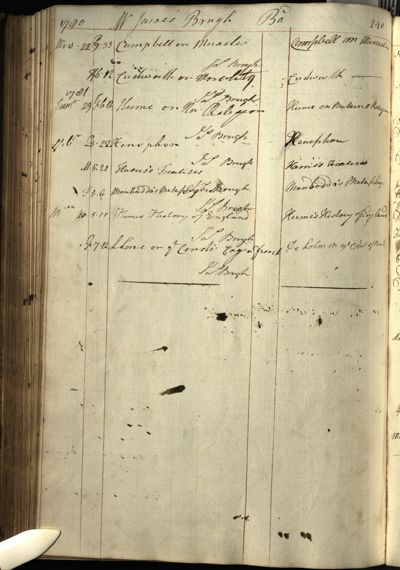 1780 Mr James Brugh Bo 240
Nov. 22 Campbell on Miracles Campbell on Miracles
Jas Brugh
Cudworth on Morality Cudworth
1781 Jas Brugh
29 Hume on Nat Religion Hume on Natural
Jas Brugh
Xenophon Xenophon
Jas Brugh
M.5.21 Harris's Treatises Harris's Treatises
Monboddo's Metaphy Brugh Monboddo's Metaphy
Jas Brugh
Hume's History of England Hume's History of England
Jas Brugh
L'olme on ye Consti De Lolm on ye
Jas Brugh